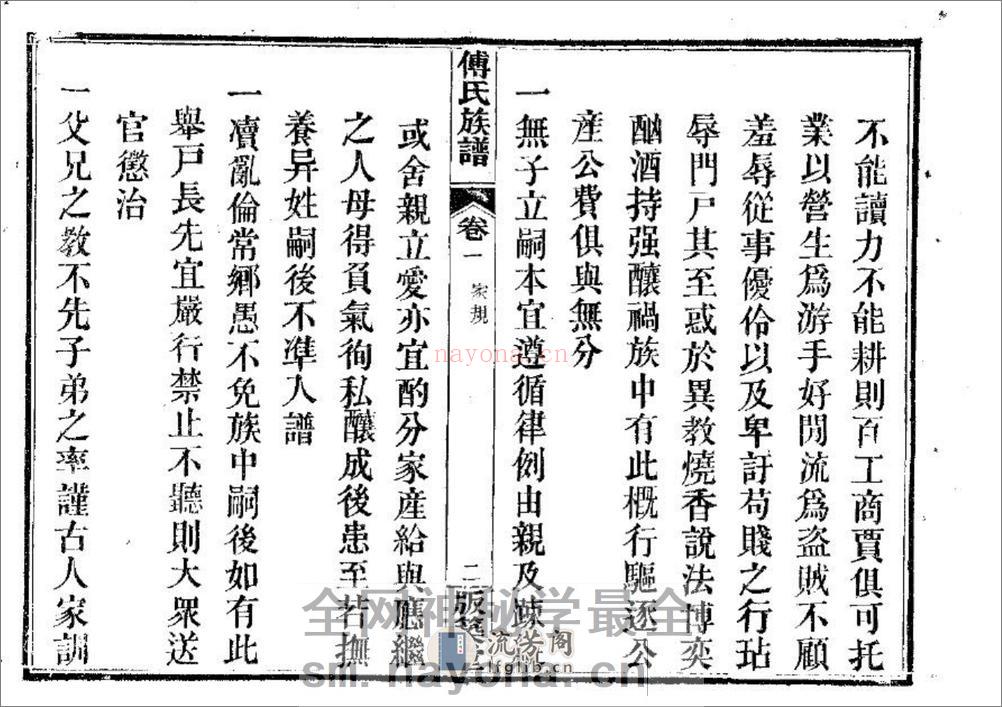 不能讀力不能耕則百工商賈俱可托
業以營生爲游手好閒流爲盜賊不顧
羞辱從事優伶以及卑訏苟賤之行玷
辱門戸其至惑於異教燒香說法博奕
酗酒持强釀禍族中有此概行驅逐公
産公費俱與無分
一無子立嗣本宜遵循律例由親及疎
傅氏族譜
卷一
家規
二
或舍親立愛亦宜酌分家産給與應繼
之人母得負氣徇私釀成後患至若撫
養异姓嗣後不準入譜
一凟亂倫常鄉愚不免族中嗣後如有此
舉戸長先宜嚴行禁止不聽則大衆送
官懲治
一父兄之教不先子弟之率謹古人家訓
nayona.cn
全网神秘学最全
sm.nayona.cn
流芳阁
lfglib.cn